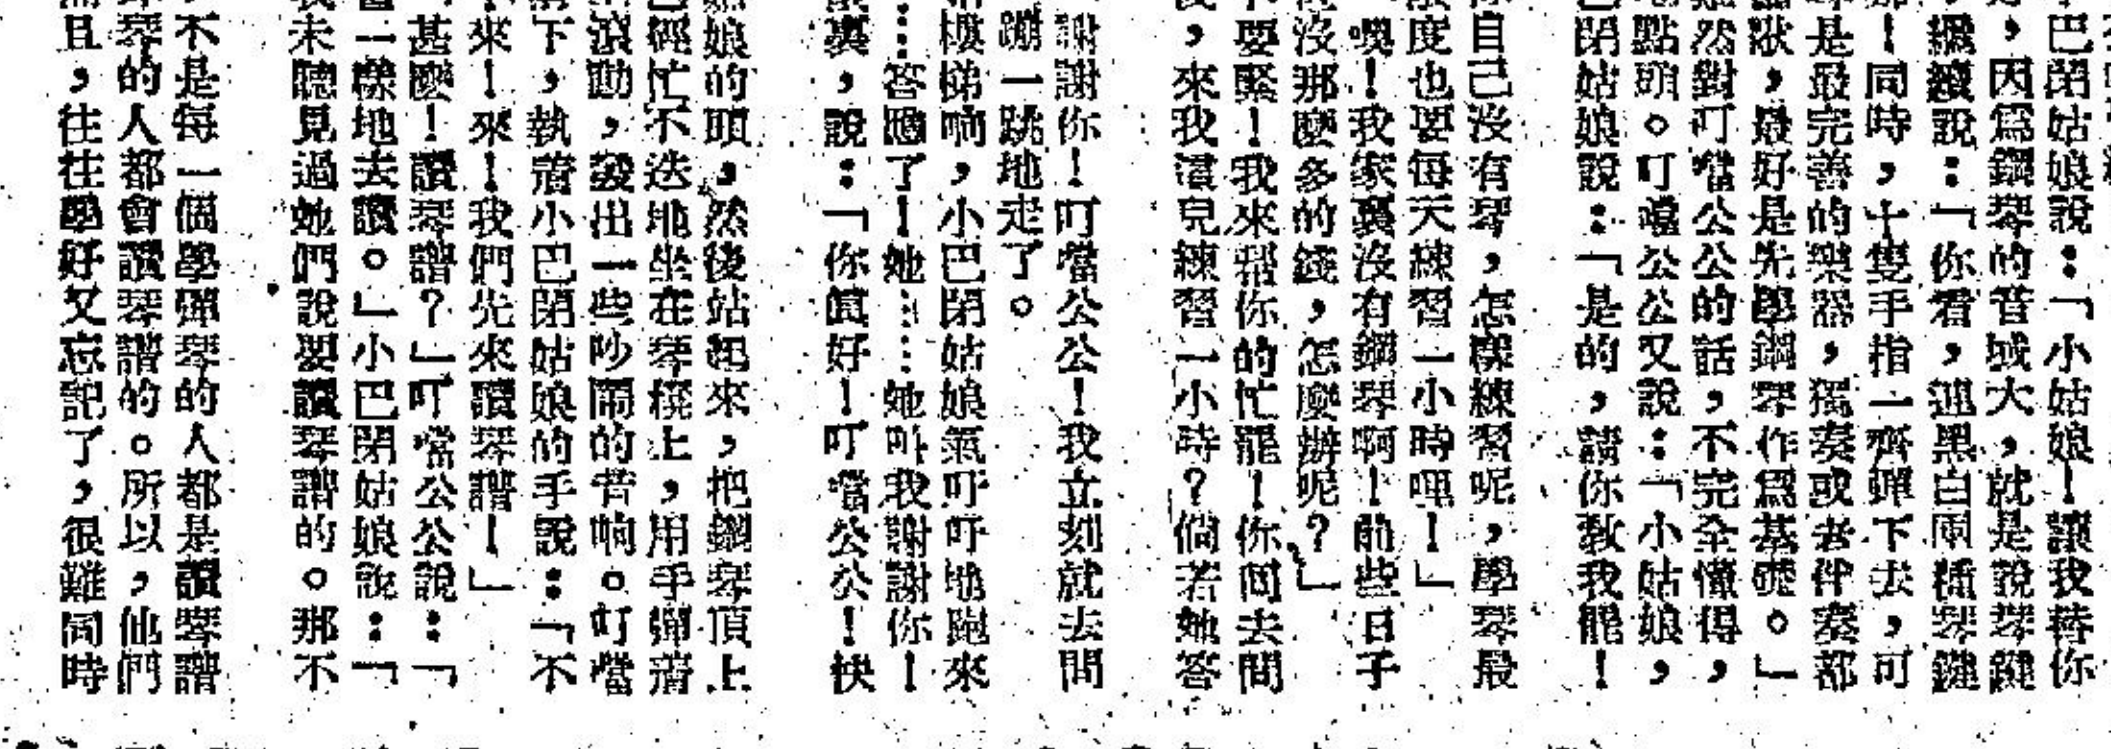 巴閉姑娘說：「小姑娘！讓我替你
，因爲鋼琴的音域大，就是說琴鍵
，繼續說：「你看，這黑白兩種琴鍵
！同時，十隻手指一齊彈下去，可
是最完善的樂器，獨奏或者伴奏都
，最好是先學鋼琴作爲基礎。」
然對叮噹公公的話，不完全懂得，
點頭。叮噹公公又說：「小姑娘，
巴閉姑娘說：「是的，請你教我罷！
自己沒有琴，怎樣練習呢，學琴最
度也要每天練習一小時哩！」
噢！我家裏沒有鋼琴啊！前些日子
沒那麼多的錢，怎麼辦呢？」
要緊！我來帮你的忙罷！你囘去問
，來我這兒練習一小時？倘若她答
謝謝你！叮噹公公！我立刻就去問
蹦一跳地走了。
樓梯响，小巴閉姑娘氣吁吁地跑來
……答應了！她……她叫我謝謝你！
裏，說：「你眞好！叮噹公公！快
娘的頭，然後站起來，把鋼琴頂上
經忙不迭地坐在琴櫈上，用手彈着
滾動，發出一些吵鬧的音响。叮噹
下，執着小巴閉姑娘的手說：「不
來！來！我們先來讀琴譜！」
甚麼！讀琴譜？」叮噹公公說：「
一樣地去讀。」小巴閉姑娘說：「
未聽見過她們說要讀琴譜的。那不
不是每一個學彈琴的人都是讀琴譜
琴的人都會讀琴譜的。所以，他們
且，往往學好又忘記了，很難同時